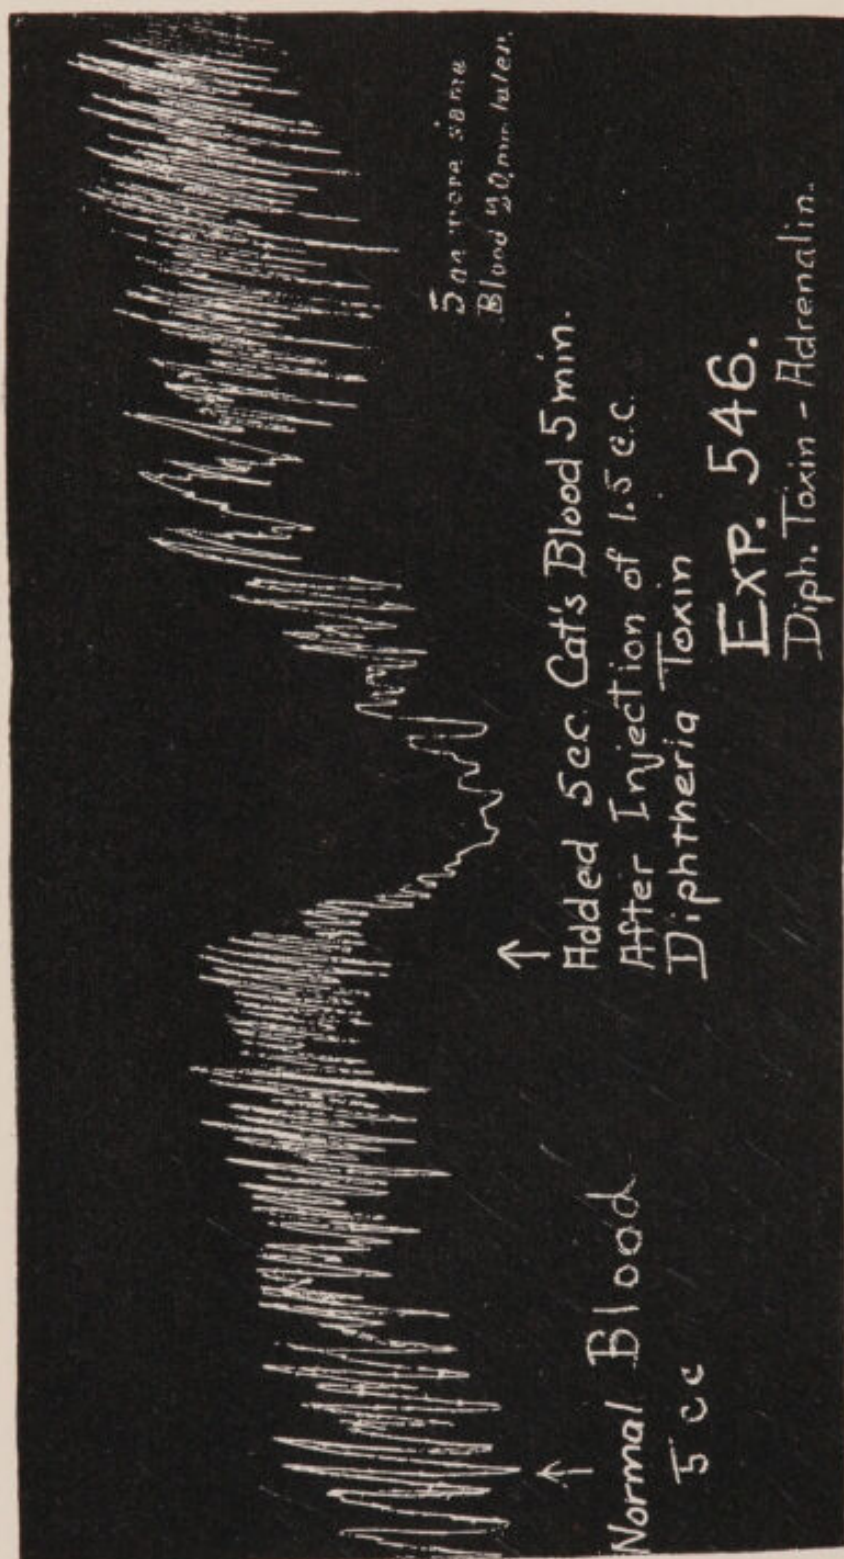 Normal Blood
5 cc
Added 5cc. Cat's Blood 5 min.
After Injection of 1.5 c.c.
Diphtheria Toxin
5 more same
Blood min later.
EXP. 546.
Diph. Toxin - Adrenalin.